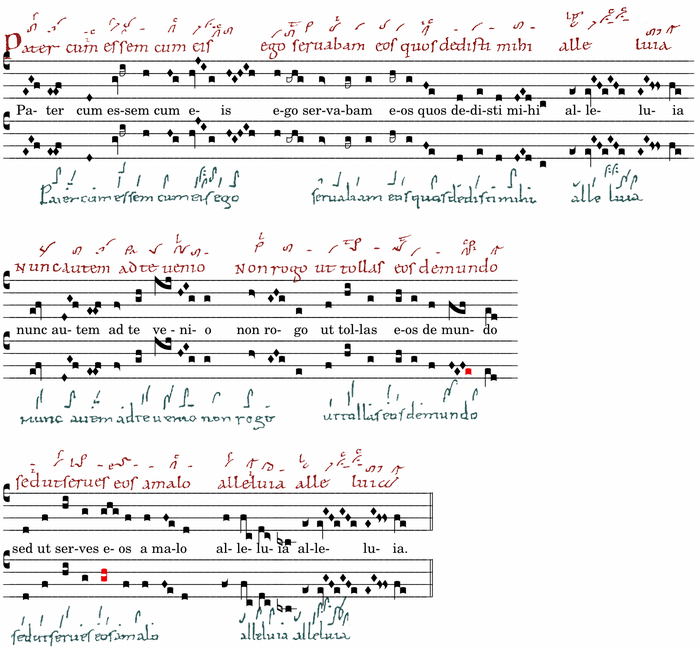 Pater cum essem cum eis ego seruabam eos quos dedisti mihi alle luia
Pa- ter cum es-sem cum e- is e-go ser-va-bam e-os quos de-di-sti mi-hi al- le- lu- ia
Pater cum essem cum eis ego seruabam eos quos dedisti mihi alle luia
Nunc autem ad te uenio Non rogo ut tollas eos de mundo
nunc au- tem ad te ve - ni- o non ro- go ut tol-las e-os de mun- do
nunc autem ad te uenio non rogo ut tollas eos de mundo
sed ut serues eos a malo alleluia alle luia
sed ut ser-ves e- os a ma-lo al- le- lu- ia al-le- lu- ia.
sed ut serues eos a malo alleluia alleluia